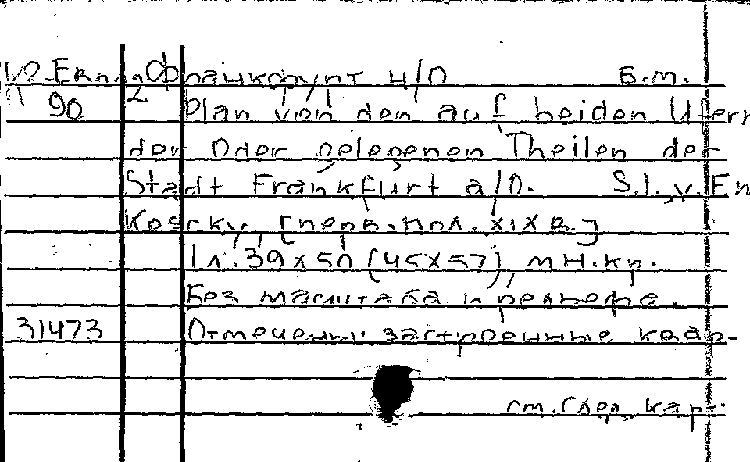 Франкфурт н/О Б.м.
90 2 Plan von den auf beiden Ufern
der Oder gelegenen Theilen der
Stadt Frankfurt a/O. S.l., v. En
[перв. пол. XIX в.]
1 л. 39 x 50 (45 x 57), мн. кр.
Без масштаба и рельефа.
31473 Отмечены застроенные квар-
см. след. карт.